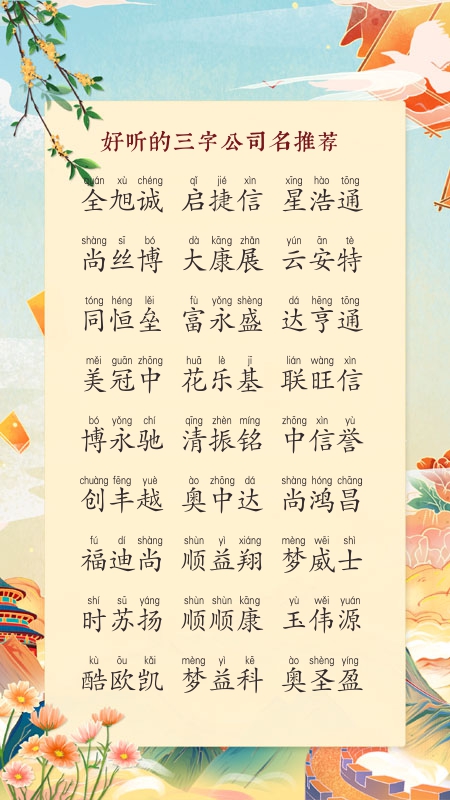 好听的三字公司名推荐
quán xù chéng qǐ jié xìn xīng hào tōng
全旭诚 启捷信 星浩通
shàng sī bó dà kāng zhǎn yún ān tè
尚丝博 大康展 云安特
tóng héng lěi fù yǒng shèng dá hēng tōng
同恒垒 富永盛 达亨通
měi guān zhōng huā lè jī lián wàng xìn
美冠中 花乐基 联旺信
bó yǒng chí qīng zhèn míng zhōng xìn yù
博永驰 清振铭 中信誉
chuàng fēng yuè ào zhōng dá shàng hóng chāng
创丰越 奥中达 尚鸿昌
fú dí shàng shùn yì xiáng mèng wēi shì
福迪尚 顺益翔 梦威士
shí sū yáng shùn shùn kāng yù wěi yuán
时苏扬 顺顺康 玉伟源
kù ōu kǎi mèng yì kē ào shèng yíng
酷欧凯 梦益科 奥圣盈